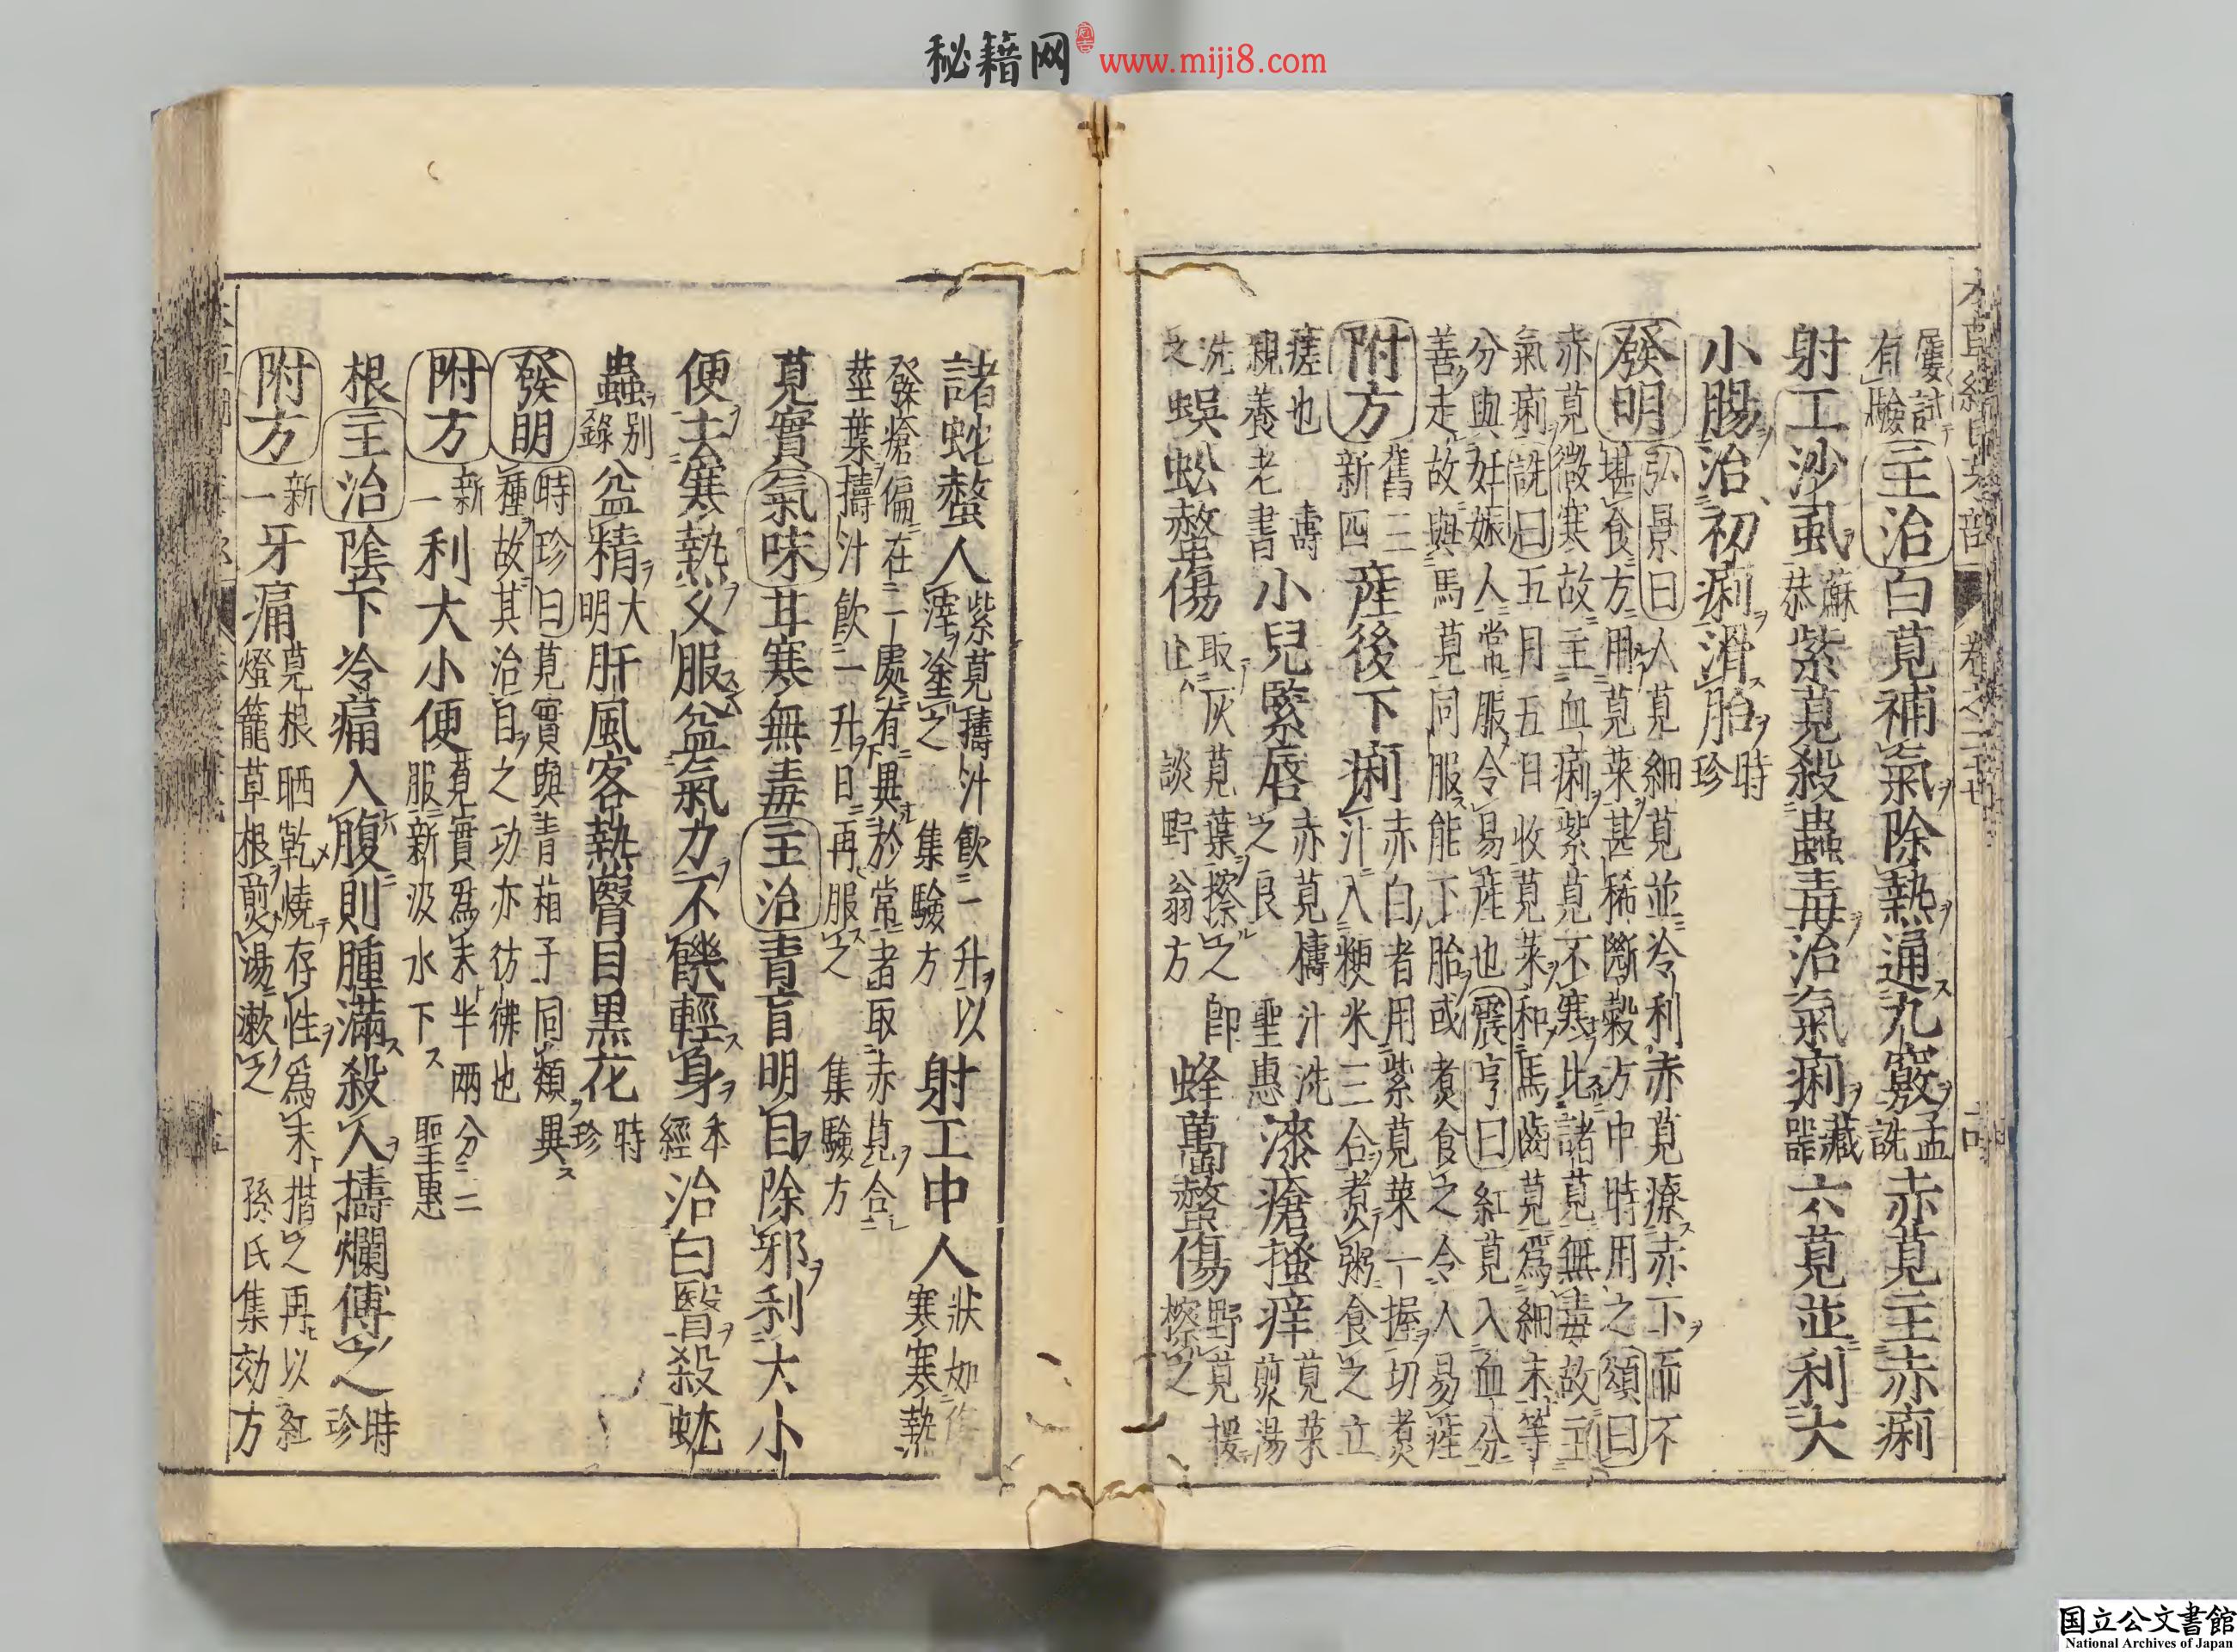 秘籍网 www.miji8.com
屢試
有驗
主治白莧補氣除熱通九竅孟詵赤莧主赤痢
射工沙虱蘇恭紫莧殺蟲毒治氣痢藏器六莧並利大
小腸治初痢滑胎時珍
發明弘景曰人莧細莧並冷利赤莧療赤下而不
堪食方用莧菜甚稀斷穀方中時用之頌曰
赤莧微寒故主血痢紫莧不寒比諸莧無毒故主
氣痢詵曰五月五日收莧菜和馬齒莧為細末等
分與妊娠人常服令易產也震亨曰紅莧入血分
善走故與馬莧同服能下胎或煮食之令人易產
附方舊三新四產後下痢赤白者用紫莧菜一握切煮
汁入粳米三合煮粥食之立
瘥也壽親養老書小兒緊唇赤莧擣汁洗之良聖惠漆瘡搔痒莧菜煎湯
洗之蜈蚣螫傷取灰莧葉擦之即止談野翁方蜂蠆螫傷野莧挼擦之
諸蛇螫人紫莧擣汁飲一升以滓塗之集驗方射工中人狀如
寒寒熱
發瘡偏在一處有異於常者取赤莧合
莖葉擣汁飲一升日再服之集驗方
莧實氣味甘寒無毒主治青盲明目除邪利大小
便去寒熱久服益氣力不饑輕身本經治白翳殺蚘
蟲別錄益精大明肝風客熱翳目黑花時珍
發明時珍曰莧實與青葙子同類異
種故其治目之功亦彷彿也
附方新一利大小便莧實為末半兩分二
服新汲水下聖惠
根主治陰下冷痛入腹則腫滿殺人擣爛傅之時珍
附方新一牙痛莧根晒乾燒存性為末揩之再以紅
燈籠草根煎湯漱之孫氏集効方
国立公文書館
National Archives of Japan